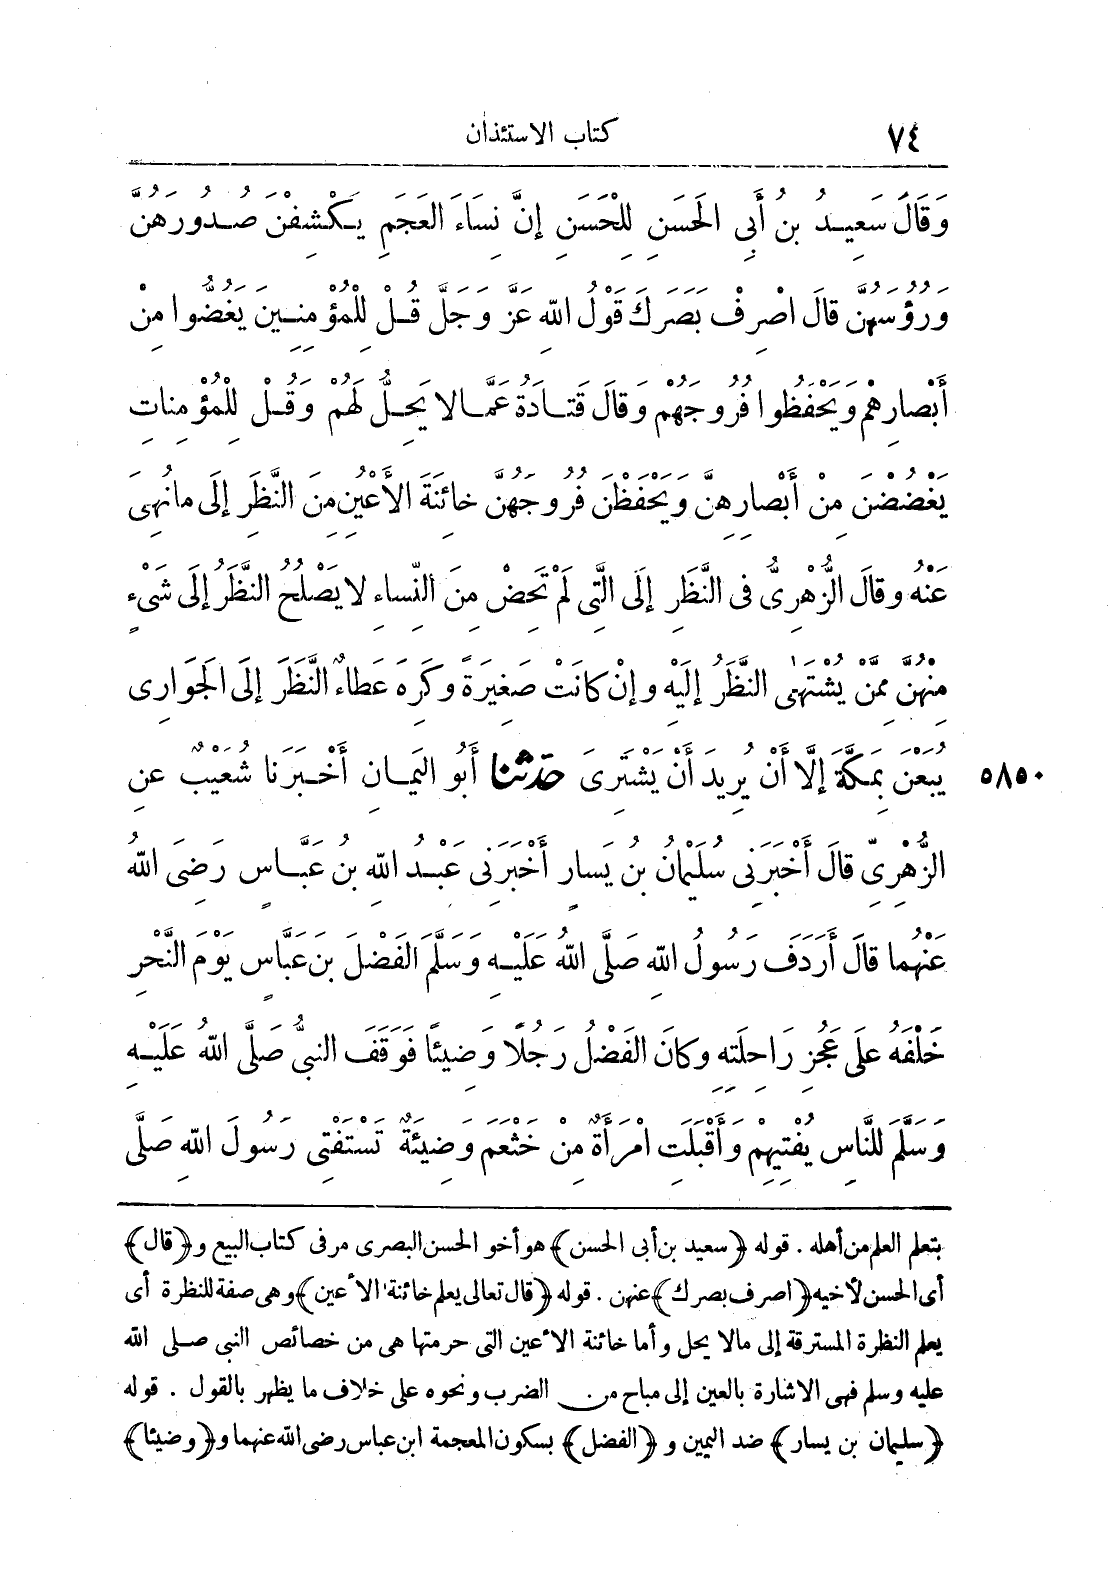 ٧٤ كتاب الاستئذان
وَقَالَ سَعِيدُ بنُ أَبِى الحَسَنِ لِلْحَسَنِ إِنَّ نِسَاءَ العَجَمِ يَكْشِفْنَ صُدُورَهُنَّ
وَرُؤُسَهُنَّ قالَ اصْرِفْ بَصَرَكَ قَوْلُ اللهِ عَزَّ وَجَلَّ قُلْ لِلْمُؤْمِنِينَ يَغُضُّوا مِنْ
أَبْصارِهِمْ وَيَحْفَظُوا فُرُوجَهُمْ وَقالَ قَتادَةُ عَمَّا لا يَحِلُّ لَهُمْ وَقُلْ لِلْمُؤْمِناتِ
يَغْضُضْنَ مِنْ أَبْصارِهِنَّ وَيَحْفَظْنَ فُرُوجَهُنَّ خائِنَةَ الأَعْيُنِ مِنَ النَّظَرِ إِلَى ما نُهِىَ
عَنْهُ وقالَ الزُّهْرِىُّ فى النَّظَرِ إِلَى الَّتِى لَمْ تَحِضْ مِنَ النِّساءِ لا يَصْلُحُ النَّظَرُ إِلَى شَىْءٍ
مِنْهُنَّ مِمَّنْ يُشْتَهَى النَّظَرُ إِلَيْهِ وإِنْ كانَتْ صَغِيرَةً وكَرِهَ عَطاءٌ النَّظَرَ إِلَى الجَوارِى
يُبَعْنَ بِمَكَّةَ إِلَّا أَنْ يُرِيدَ أَنْ يَشْتَرِىَ حدثنا أَبُو اليَمانِ أَخْبَرَنا شُعَيْبٌ عنِ ٥٨٥٠
الزُّهْرِىِّ قالَ أَخْبَرَنِى سُلَيْمانُ بنُ يَسارٍ أَخْبَرَنِى عَبْدُ اللهِ بنُ عَبَّاسٍ رَضِىَ اللهُ
عَنْهُما قالَ أَرْدَفَ رَسُولُ اللهِ صَلَّى اللهُ عَلَيْهِ وَسَلَّمَ الفَضْلَ بنَ عَبَّاسٍ يَوْمَ النَّحْرِ
خَلْفَهُ عَلَى عَجُزِ رَاحِلَتِهِ وكانَ الفَضْلُ رَجُلًا وَضِيئًا فَوَقَفَ النبىُّ صَلَّى اللهُ عَلَيْهِ
وَسَلَّمَ لِلنَّاسِ يُفْتِيهِمْ وَأَقْبَلَتِ امْرَأَةٌ مِنْ خَثْعَمَ وَضِيئَةٌ تَسْتَفْتِى رَسُولَ اللهِ صَلَّى
بتعلم العلم من أهله . قوله ﴿سعيد بن أبى الحسن﴾ هو أخو الحسن البصرى مر فى كتاب البيع و﴿قال﴾
أى الحسن لأخيه ﴿اصرف بصرك﴾ عنهن . قوله ﴿قال تعالى يعلم خائنة الأعين﴾ وهى صفة للنظرة أى
يعلم النظرة المسترقة إلى مالا يحل وأما خائنة الأعين التى حرمتها هى من خصائص النبى صلى الله
عليه وسلم فهى الاشارة بالعين إلى مباح من الضرب ونحوه على خلاف ما يظهر بالقول . قوله
﴿سليمان بن يسار﴾ ضد اليمين و ﴿الفضل﴾ بسكون المعجمة ابن عباس رضى الله عنهما و﴿وضيئا﴾